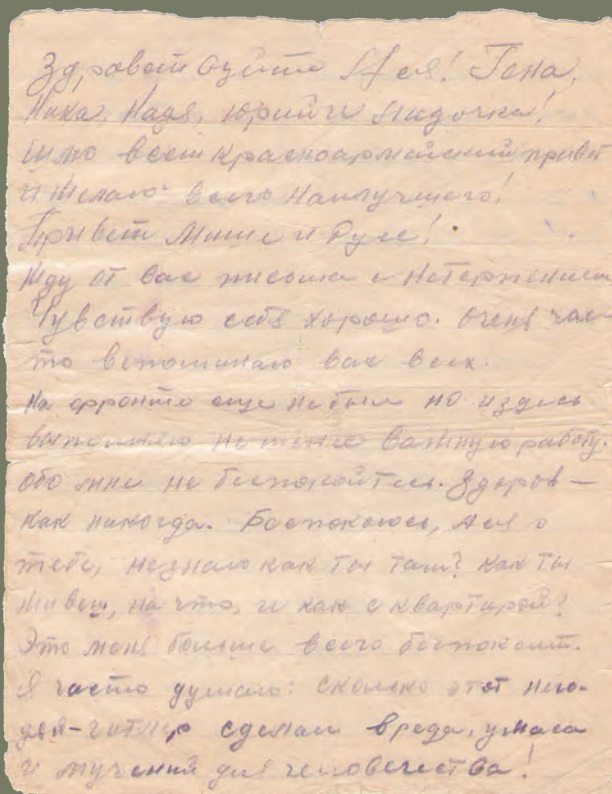 Здравствуйте Ася! Гена,
Ника, Надя, Юрий и Лидочка!
Шлю всем красноармейский привет
и желаю всего наилучшего!
Привет Мише и Русе!
Жду от вас письма с нетерпением
Чувствую себя хорошо. Очень час-
то вспоминаю вас всех.
На фронте еще не был но и здесь
выполняю не менее важную работу.
Обо мне не беспокойтесь. Здоров —
как никогда. Беспокоюсь, Ася о
тебе, не знаю как ты там? Как ты
живеш, на что, и как с квартирой?
Это меня больше всего беспокоит.
Я часто думаю: сколько этот него-
дяй-гитлер сделал вреда, ужаса
и мучений для человечества!